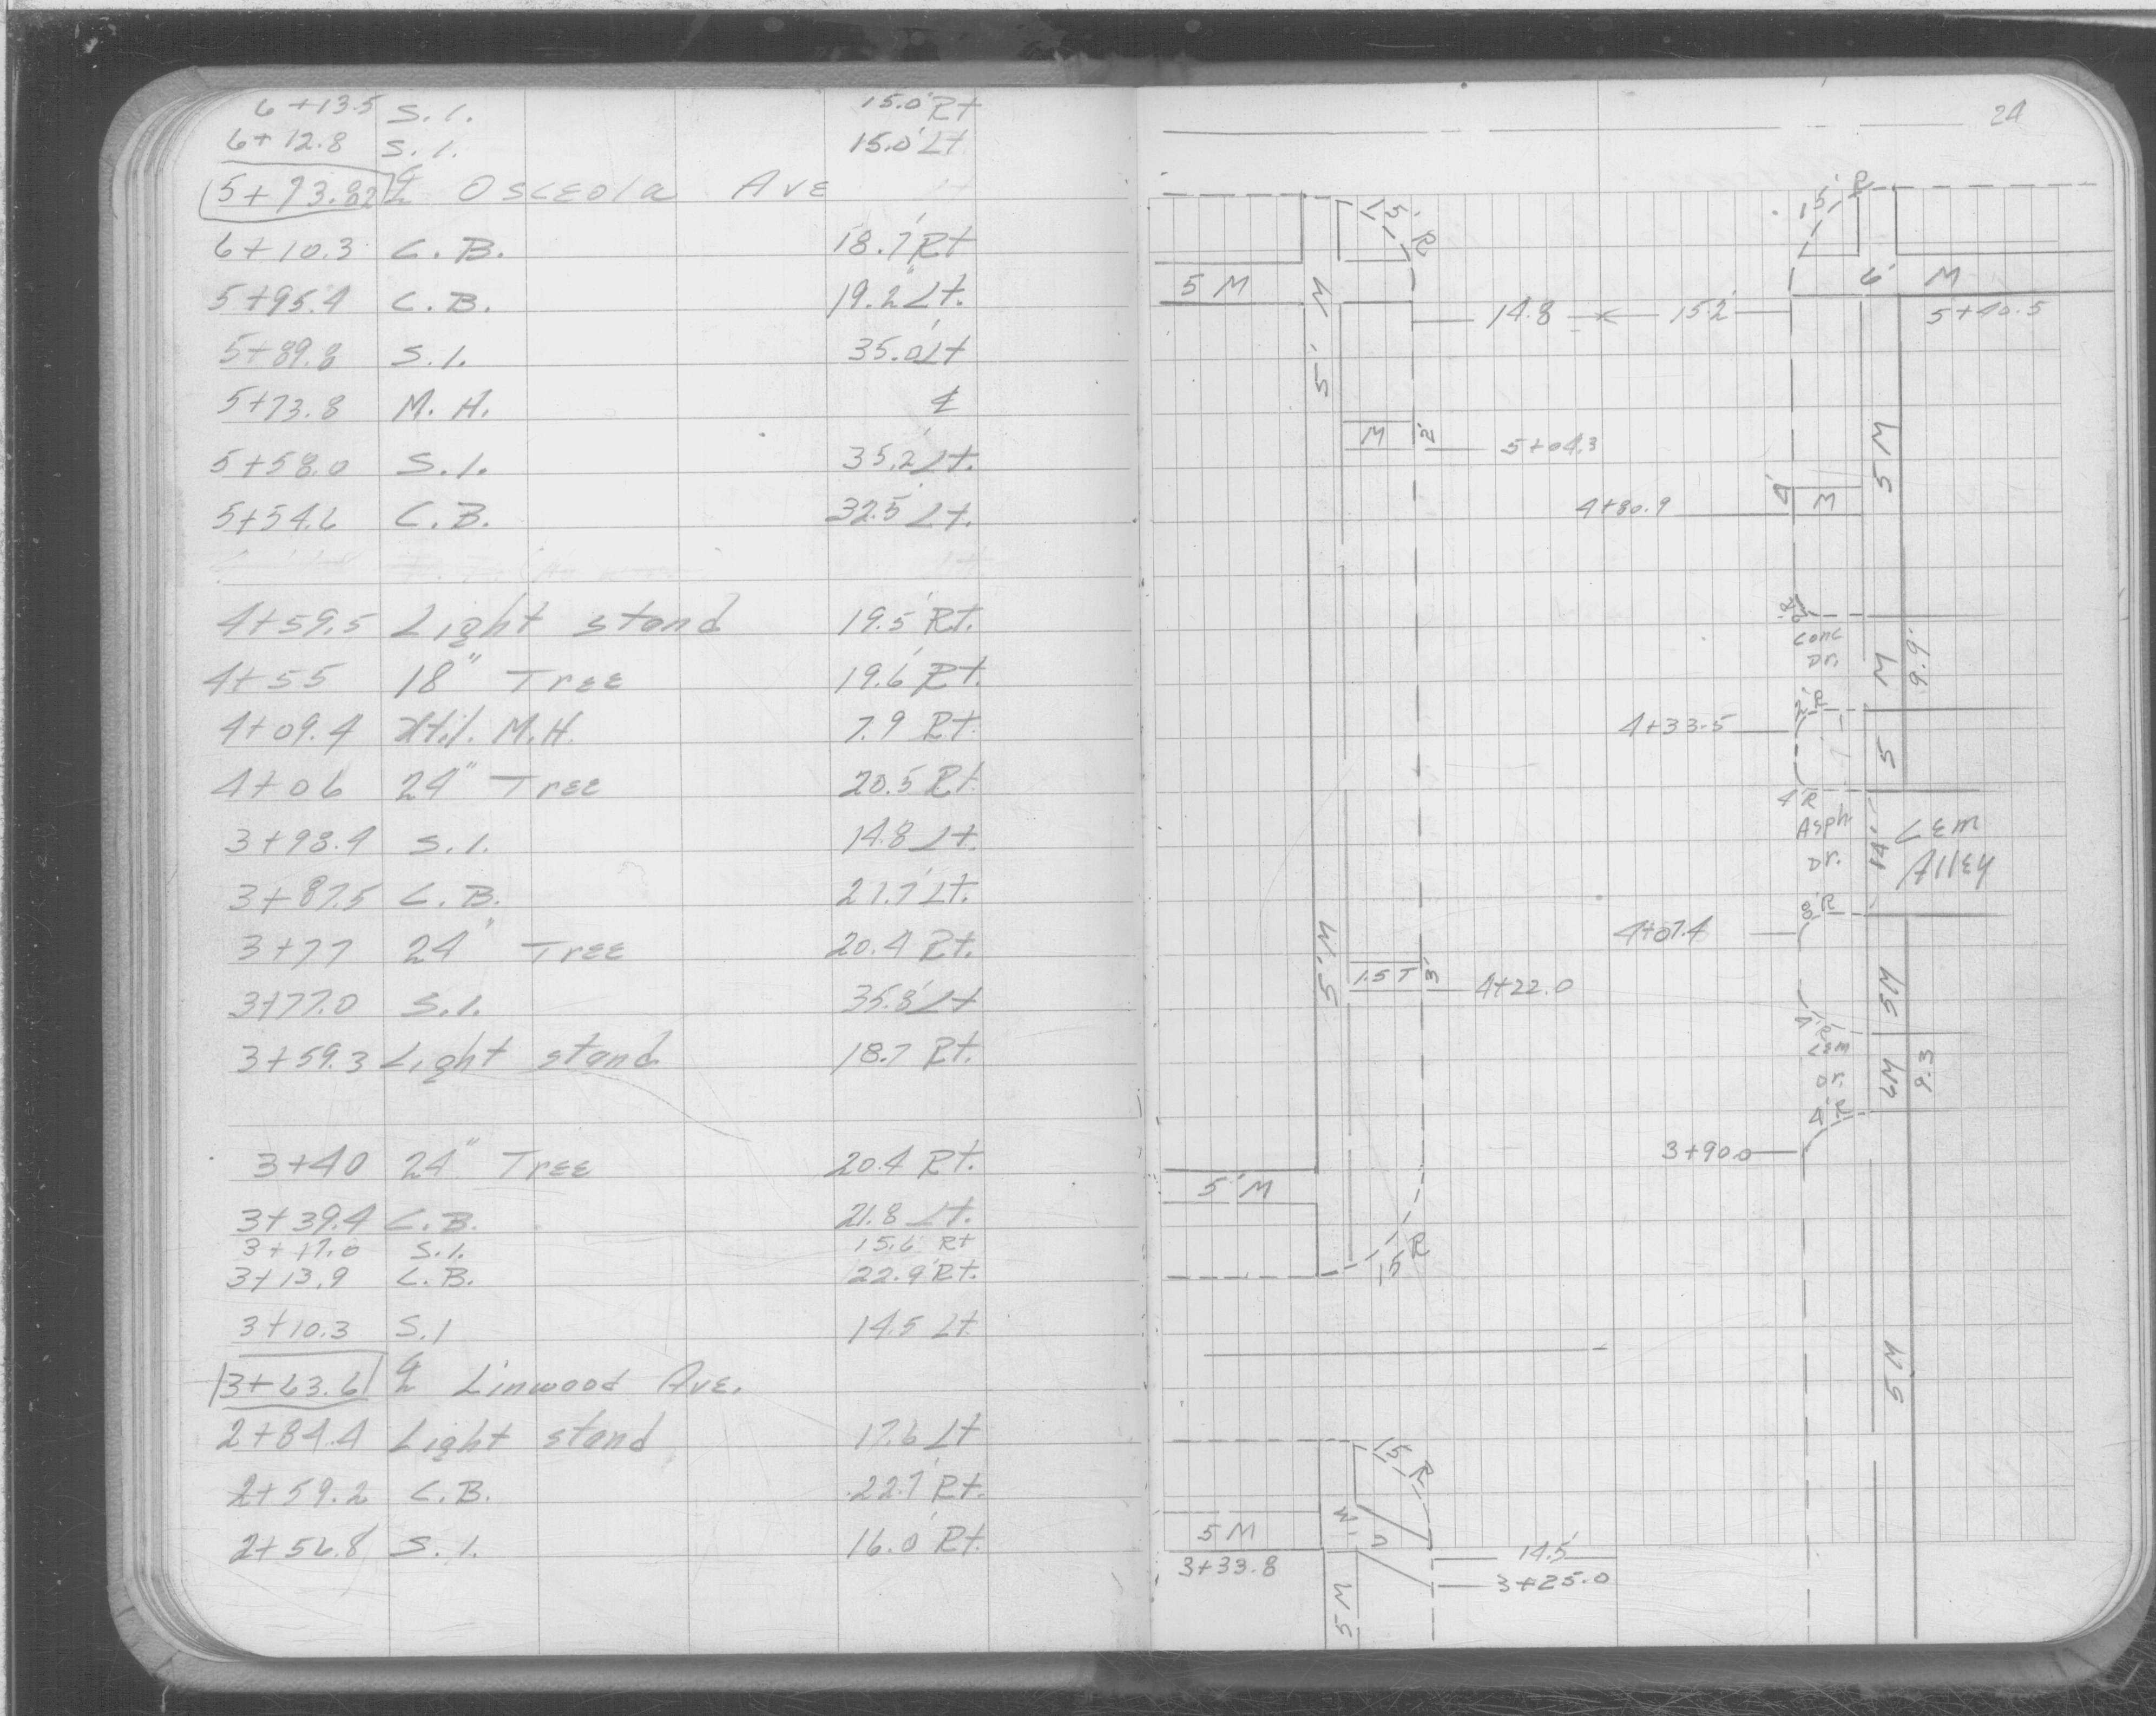 6+13.5 S.I. 15.0' Rt
6+12.8 S.I. 15.0' Lt
5+73.82 ℄ Osceola Ave
6+10.3 C.B. 18.7' Rt
5+95.4 C.B. 19.2' Lt.
5+89.8 S.I. 35.0' Lt
5+73.8 M.H. ℄
5+58.0 S.I. 35.2' Lt.
5+54.6 C.B. 32.5' Lt.
4+59.5 Light stand 19.5' Rt.
4+55 18" Tree 19.6' Rt.
4+09.4 Util. M.H. 7.9' Rt.
4+06 24" Tree 20.5' Rt.
3+98.4 S.I. 14.8' Lt.
3+87.5 C.B. 21.7' Lt.
3+77 24" Tree 20.4' Rt.
3+77.0 S.I. 35.8' Lt
3+59.3 Light stand 18.7' Rt.
3+40 24" Tree 20.4' Rt.
3+39.4 C.B. 21.8' Lt.
3+17.0 S.I. 15.6' Rt
3+13.9 C.B. 22.9' Rt.
3+10.3 S.I 14.5' Lt
3+63.61 ℄ Linwood Ave.
2+84.4 Light stand 17.6' Lt
2+59.2 C.B. 22.7' Rt.
2+56.8 S.I. 16.0' Rt.
24
15' R
15' R
5 M
5' M
6' M
14.8
15.2'
5+40.5
M 2'
5+04.3
4+80.9
4'
M
5 M
Conc
Dr.
5 M
9.9'
2' R
4+33.5
4' R
Asph.
Dr.
14'
Cem
Alley
8' R
4+07.4
5' M
1.5 T 3'
4+22.0
5M
4' R
Cem
Dr.
6M
9.3
4' R
3+90.0
5' M
15' R
5 M
15' R
5 M
3+33.8
5 M
14.5'
3+25.0